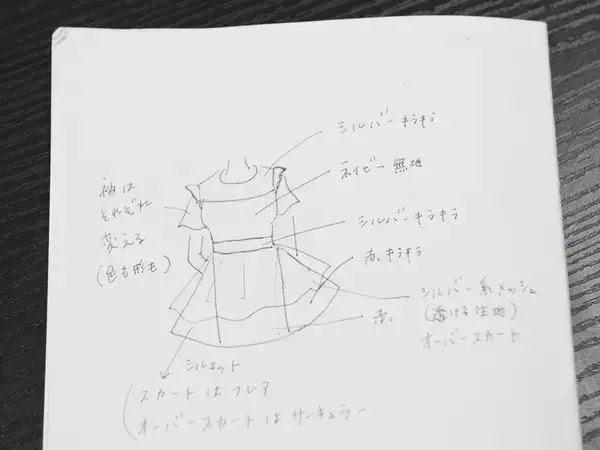 シルバーキラキラ
ネイビー無地
袖は
それぞれ
変える
(色も形も)
シルバーキラキラ
赤、キラキラ
シルバー系メッシュ
(透ける生地)
オーバースカート
赤、
シルエット
スカートはフレア
オーバースカートはサーキュラー